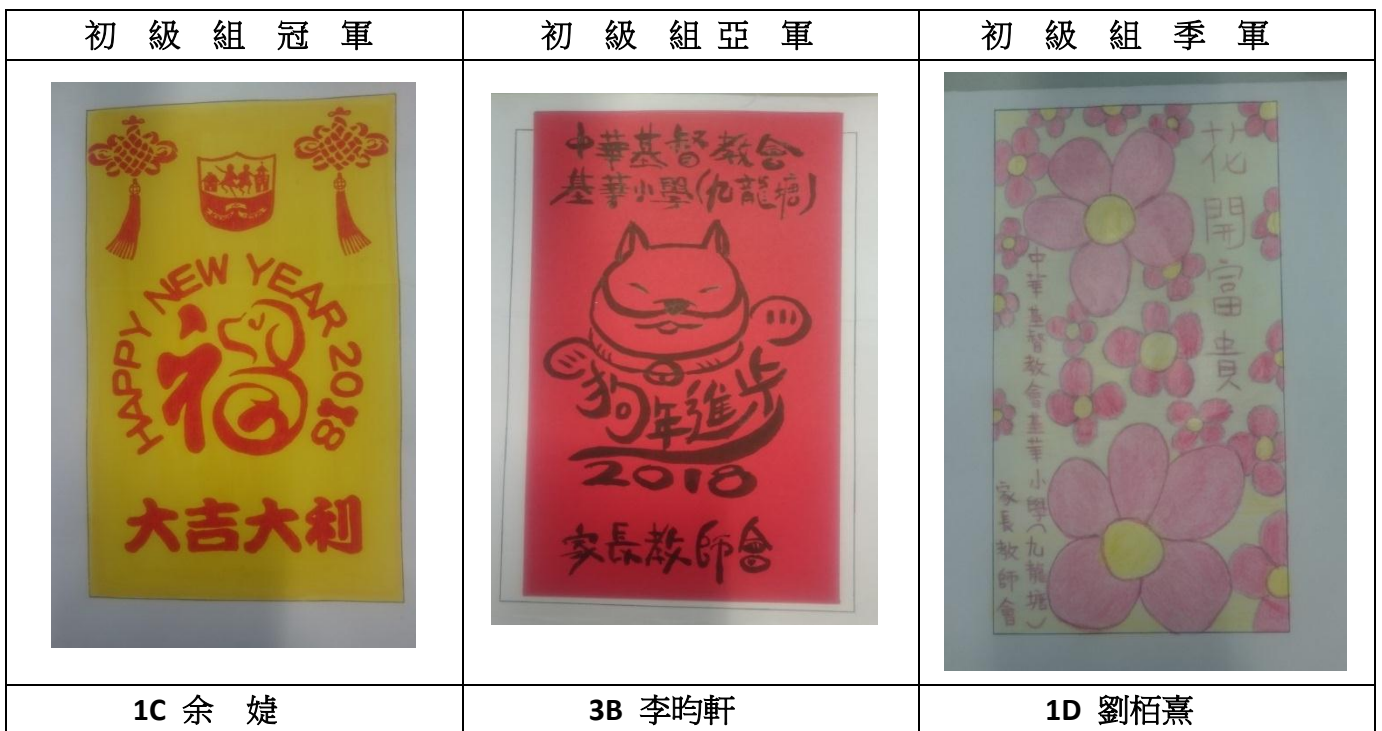 初級組冠軍
初級組亞軍
初級組季軍
HAPPY NEW YEAR 2018
福
大吉大利
中華基督教會
基華小學(九龍塘)
狗年進步
2018
家長教師會
花開富貴
中華基督教會基華小學(九龍塘)
家長教師會
1C 余 婕
3B 李昀軒
1D 劉栢熹